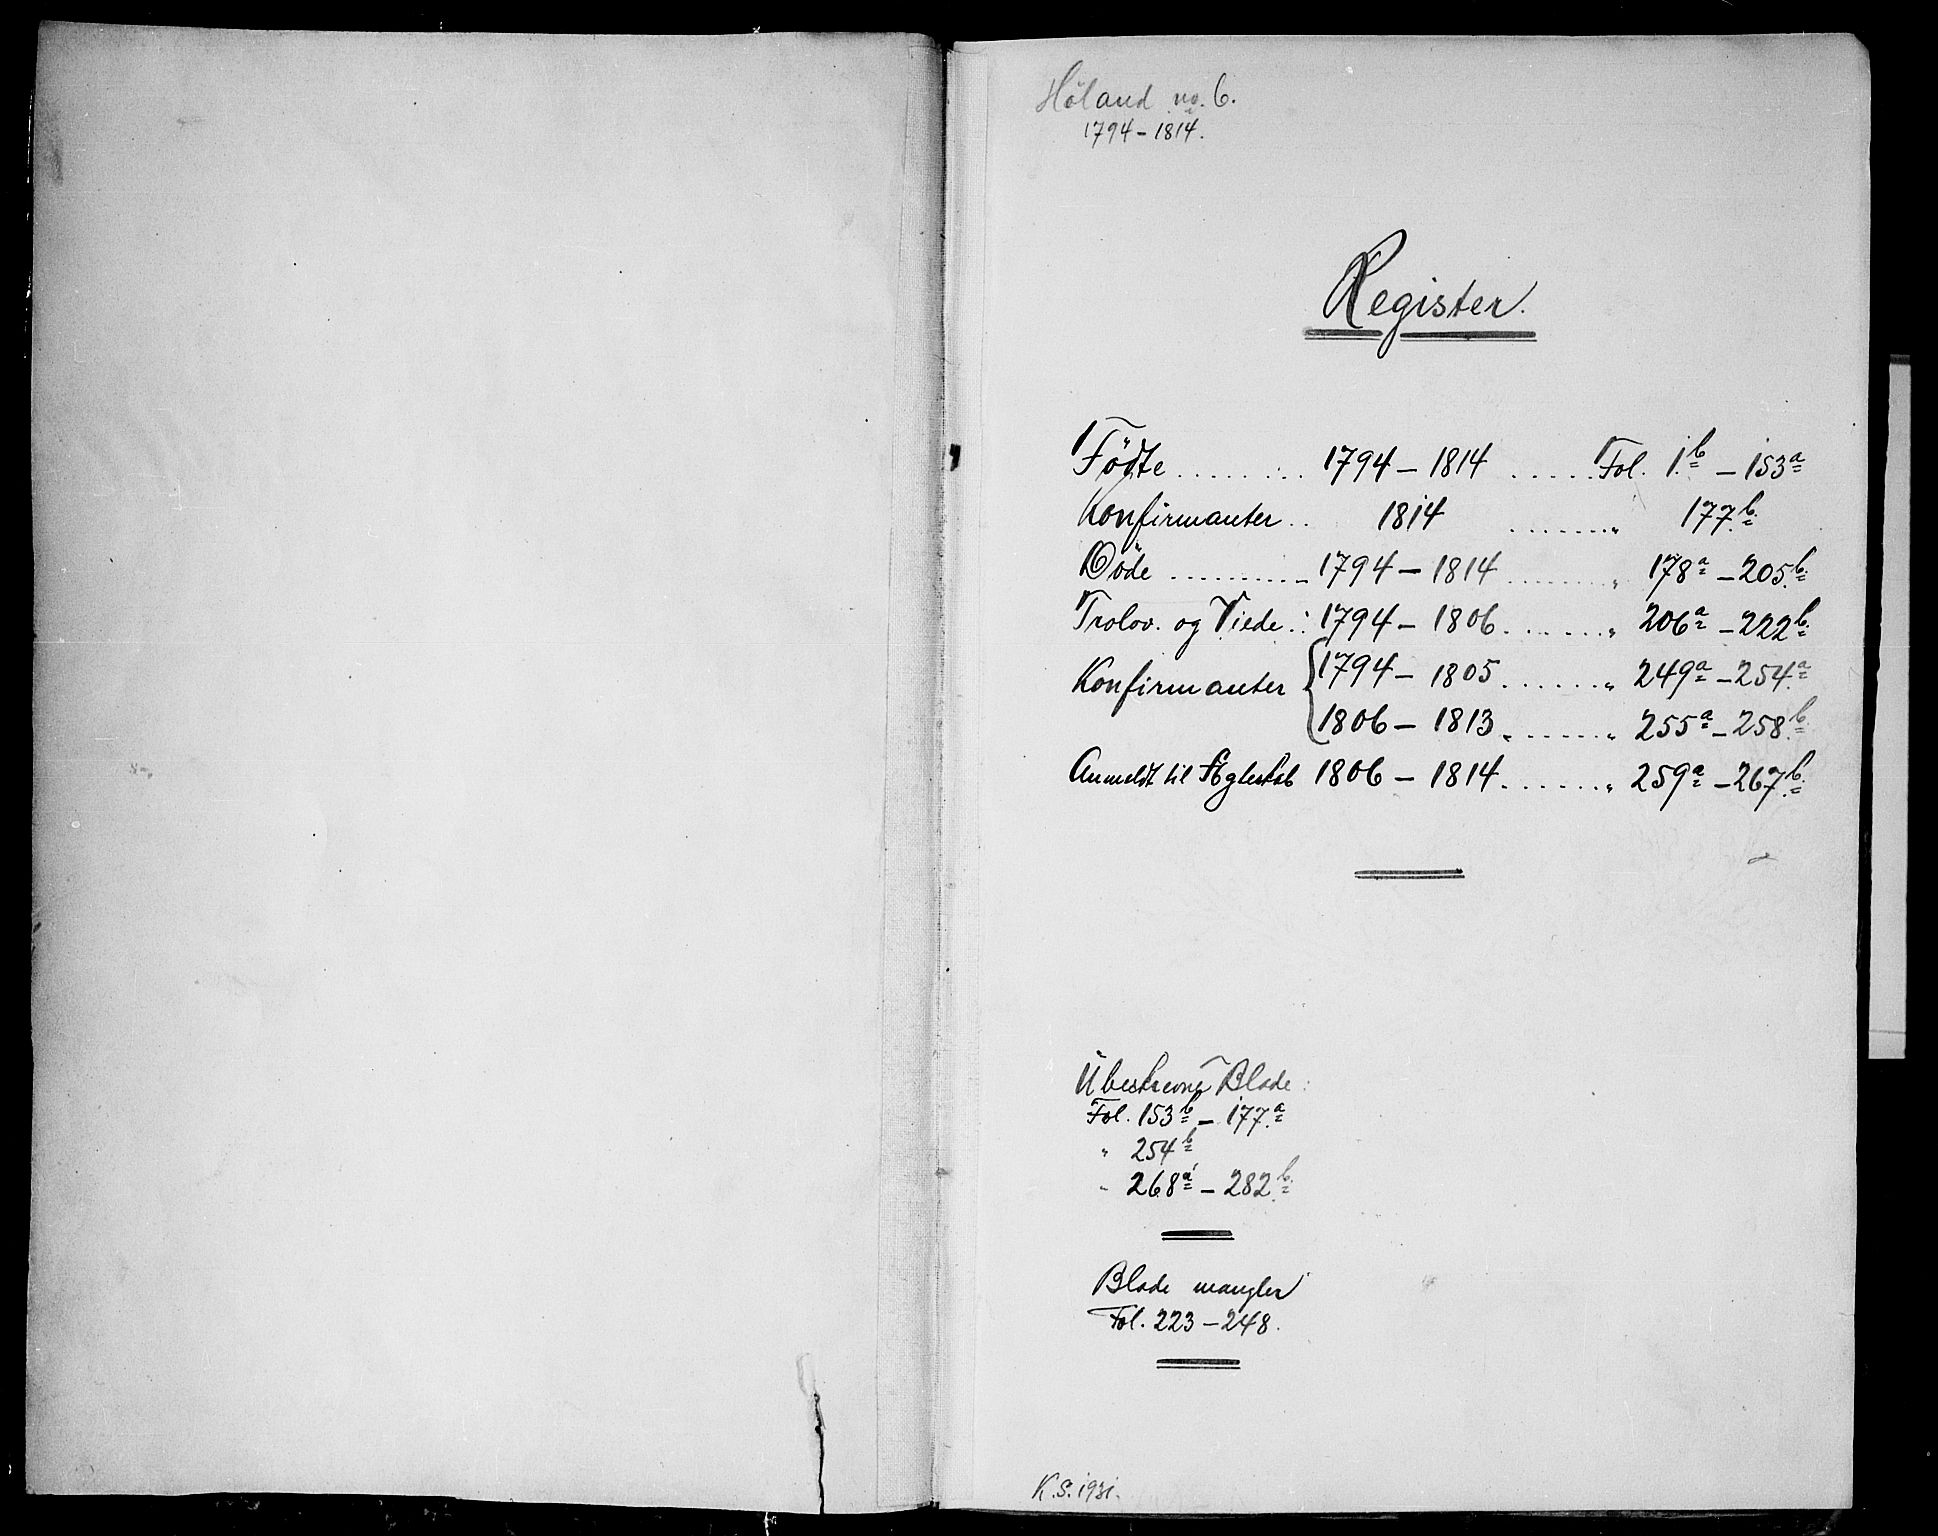 Höland no. 6.
1794 – 1814.
Register.
Födte ........ 1794 – 1814 ..... Fol. 1.b – 153a
Konfirmanter .. 1814 ........ " 177.b
Döde .......... 1794 – 1814 ........ " 178a – 205.b
Trolov. og Viede .. 1794 – 1806 ....... " 206a – 222b.
Konfirmanter { 1794 – 1805 ....... " 249a – 254.a
1806 – 1813 ....... " 255a – 258.b
Anmeldt til Ægteskab 1806 – 1814 ....... " 259a – 267.b
Übeskrevne Blade:
Fol. 153b – 177.a
" 254b
" 268a – 282.b
Blade mangler
Fol. 223 – 248.
K.S. 1931.